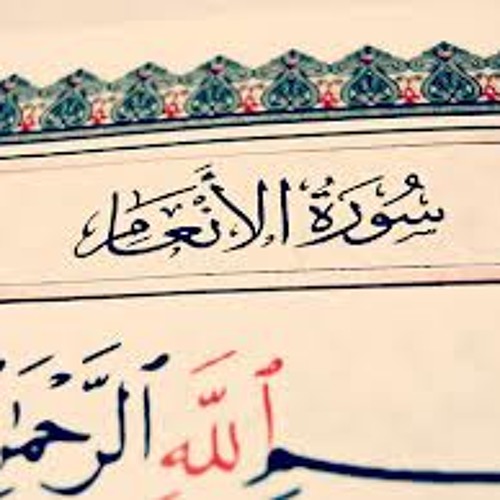 سُورَةُ الأَنْعَامِ
ـسمِ ٱللَّهِ ٱلرَّحْمَٰنِ